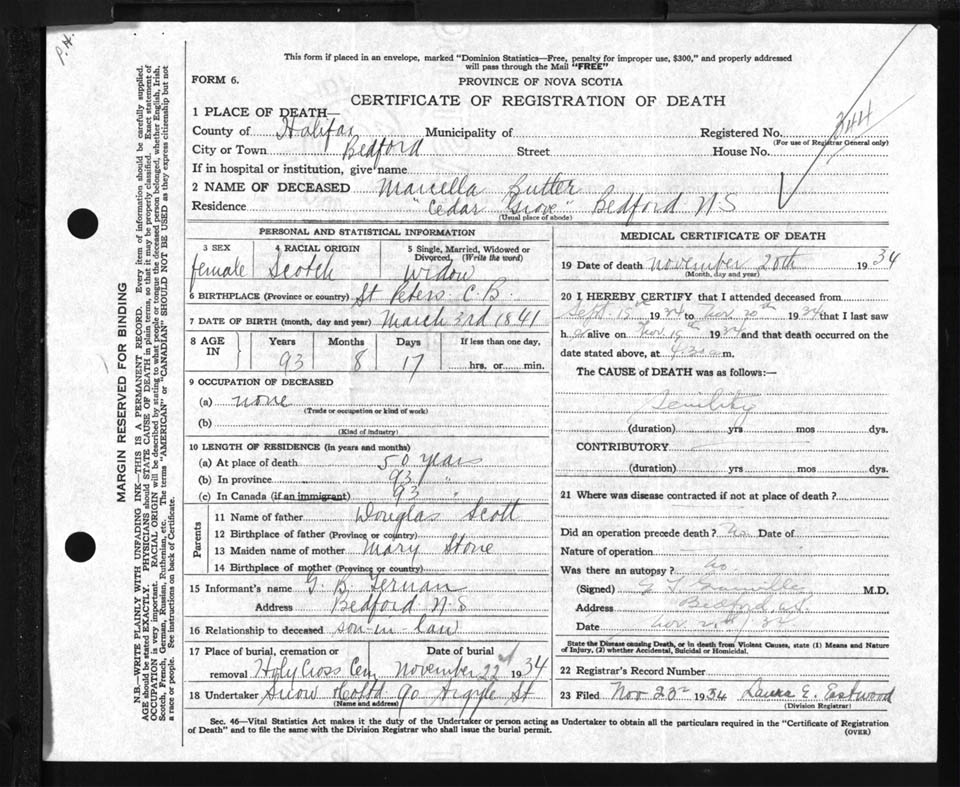 P.H.
This form if placed in an envelope, marked "Dominion Statistics—Free, penalty for improper use, $300," and properly addressed
will pass through the Mail "FREE"
FORM 6.
PROVINCE OF NOVA SCOTIA
CERTIFICATE OF REGISTRATION OF DEATH
1 PLACE OF DEATH—
County of Halifax Municipality of Registered No. 344
(For use of Registrar General only)
City or Town Bedford Street House No.
If in hospital or institution, give name
2 NAME OF DECEASED Marcella Butter
Residence "Cedar Grove" Bedford N S
(Usual place of abode)
PERSONAL AND STATISTICAL INFORMATION
3 SEX 4 RACIAL ORIGIN 5 Single, Married, Widowed or
Divorced, (Write the word)
female Scotch widow
6 BIRTHPLACE (Province or country) St Peters C.B.
7 DATE OF BIRTH (month, day and year) March 3rd 1841
8 AGE IN Years Months Days If less than one day,
93 8 17 hrs. or min.
9 OCCUPATION OF DECEASED
(a) none
(Trade or occupation or kind of work)
(b)
(Kind of industry)
10 LENGTH OF RESIDENCE (in years and months)
(a) At place of death 50 years
(b) In province 93 "
(c) In Canada (if an immigrant) 93 "
Parents
11 Name of father Douglas Scott
12 Birthplace of father (Province or country)
13 Maiden name of mother Mary Stone
14 Birthplace of mother (Province or country)
15 Informant's name G. B. Fernan
Address Bedford N S
16 Relationship to deceased son-in-law
17 Place of burial, cremation or Date of burial
removal Holy Cross Cem November 22nd 1934
18 Undertaker Snow & Co Ltd 90 Argyle St
(Name and address)
MEDICAL CERTIFICATE OF DEATH
19 Date of death November 20th 1934
(Month, day and year)
20 I HEREBY CERTIFY that I attended deceased from
Sept. 15th 1934 to Nov. 20th 1934 that I last saw
h er alive on Nov. 19th 1934 and that death occurred on the
date stated above, at a.m.
The CAUSE of DEATH was as follows:—
Senility
(duration) yrs mos dys.
CONTRIBUTORY
(duration) yrs mos dys.
21 Where was disease contracted if not at place of death?
Did an operation precede death? No. Date of
Nature of operation
Was there an autopsy? No.
(Signed) M.D.
Address Bedford N.S.
Date Nov. 20th/34
State the Disease causing Death, or in death from Violent Causes, state (1) Means and Nature
of Injury, (2) whether Accidental, Suicidal or Homicidal.
22 Registrar's Record Number
23 Filed Nov 1934 Laura E. Eastwood
(Division Registrar)
Sec. 46—Vital Statistics Act makes it the duty of the Undertaker or person acting as Undertaker to obtain all the particulars required in the "Certificate of Registration
of Death" and to file the same with the Division Registrar who shall issue the burial permit.
(OVER)
MARGIN RESERVED FOR BINDING
N.B.—WRITE PLAINLY WITH UNFADING INK—THIS IS A PERMANENT RECORD. Every item of information should be carefully supplied.
AGE should be stated EXACTLY. PHYSICIANS should STATE CAUSE OF DEATH in plain terms, so that it may be properly classified. Exact statement of
OCCUPATION is very important. RACIAL ORIGIN will be described by stating to what people or tongue the deceased person belonged, whether English, Irish,
Scotch, French, German, Russian, Ruthenian, etc. The terms "AMERICAN" or "CANADIAN" SHOULD NOT BE USED as they express citizenship but not
a race or people. See instructions on back of Certificate.